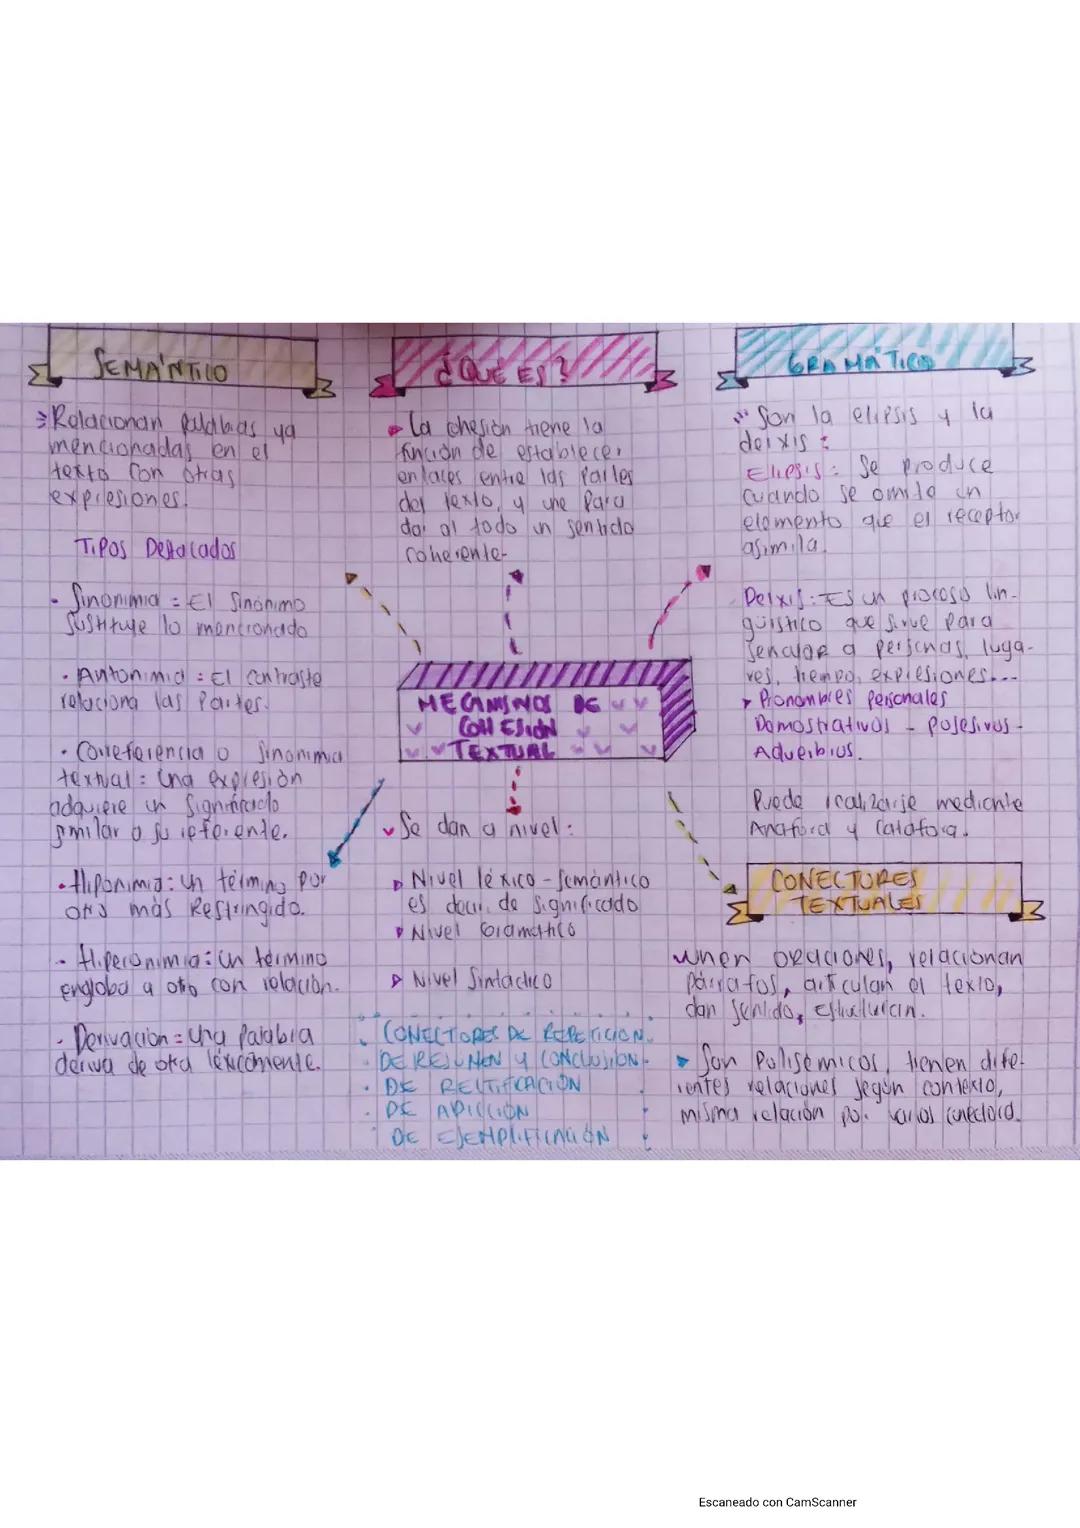 SEMÁNTICO
Relacionan palabras ya
mencionadas en el
texto con otras
expresiones.
Tipos Destacados
- Sinonimia = El Sinónimo
sustituye lo mencionado
- Antonimia : El contraste
relaciona las partes.
- Correferencia o Sinonimia
textual : Una expresión
adquiere un significado
similar a su referente.
- Hiponimia: un término por
otro más Restringido.
- Hiperonimia: un término
engloba a otro con relación.
- Derivación = una Palabra
deriva de otra léxicamente.
¿QUÉ ES?
La cohesión tiene la
función de establecer
enlaces entre las partes
del texto, y une para
dar al todo un sentido
coherente-
MECANISMOS DE
COHESION
TEXTUAL
Se dan a nivel :
Nivel léxico - semántico
es decir, de significado
Nivel Gramático
Nivel Sintáctico
CONECTORES DE REPETICIÓN.
DE RESUMEN Y CONCLUSION-
- DE RECTIFICACIÓN
- DE ADICCIÓN
DE EJEMPLIFICACIÓN
GRAMÁTICO
Son la elipsis y la
deixis :
Elipsis : Se produce
cuando se omite un
elemento que el receptor
asimila.
Deixis : Es un proceso lin-
güistico que sirve para
señalar a personas, luga-
res, tiempo, expresiones...
Pronombres personales
Demostrativos - posesivos -
Adverbios.
Puede realizarse mediante
Anáfora y Catáfora.
CONECTORES
TEXTUALES
unen oraciones, relacionan
párrafos, articulan el texto,
dan sentido,
Son Polisémicos, tienen dife-
rentes relaciones según contexto,
misma relación por varios
Escaneado con CamScanner